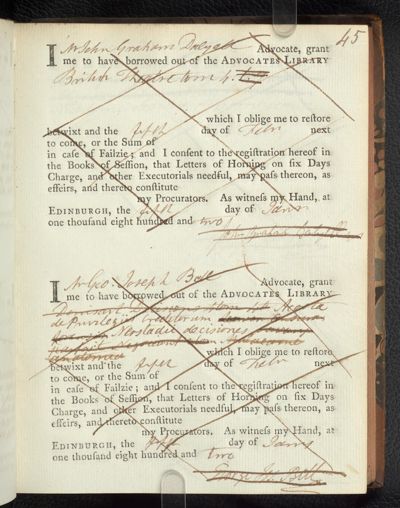 45
I Mr John Graham Dalyell Advocate, grant
me to have borrowed out of the ADVOCATES LIBRARY
British Theatre tom 4.
which I oblige me to restore
betwixt and the fifth day of Febr next
to come, or the Sum of
in case of Failzie; and I consent to the registration hereof in
the Books of Session, that Letters of Horning on six Days
Charge, and other Executorials needful, may pass thereon, as
effeirs, and thereto constitute
my Procurators. As witness my Hand, at
EDINBURGH, the fifth day of Janry
one thousand eight hundred and two
John Graham Dalyell
I Mr Geo: Joseph Bell Advocate, grant
me to have borrowed out of the ADVOCATES LIBRARY
de privilegiis creditorum
Neostadii decisiones
which I oblige me to restore
betwixt and the fifth day of Febr next
to come, or the Sum of
in case of Failzie; and I consent to the registration hereof in
the Books of Session, that Letters of Horning on six Days
Charge, and other Executorials needful, may pass thereon, as
effeirs, and thereto constitute
my Procurators. As witness my Hand, at
EDINBURGH, the fifth day of Janry
one thousand eight hundred and two
George Jos. Bell